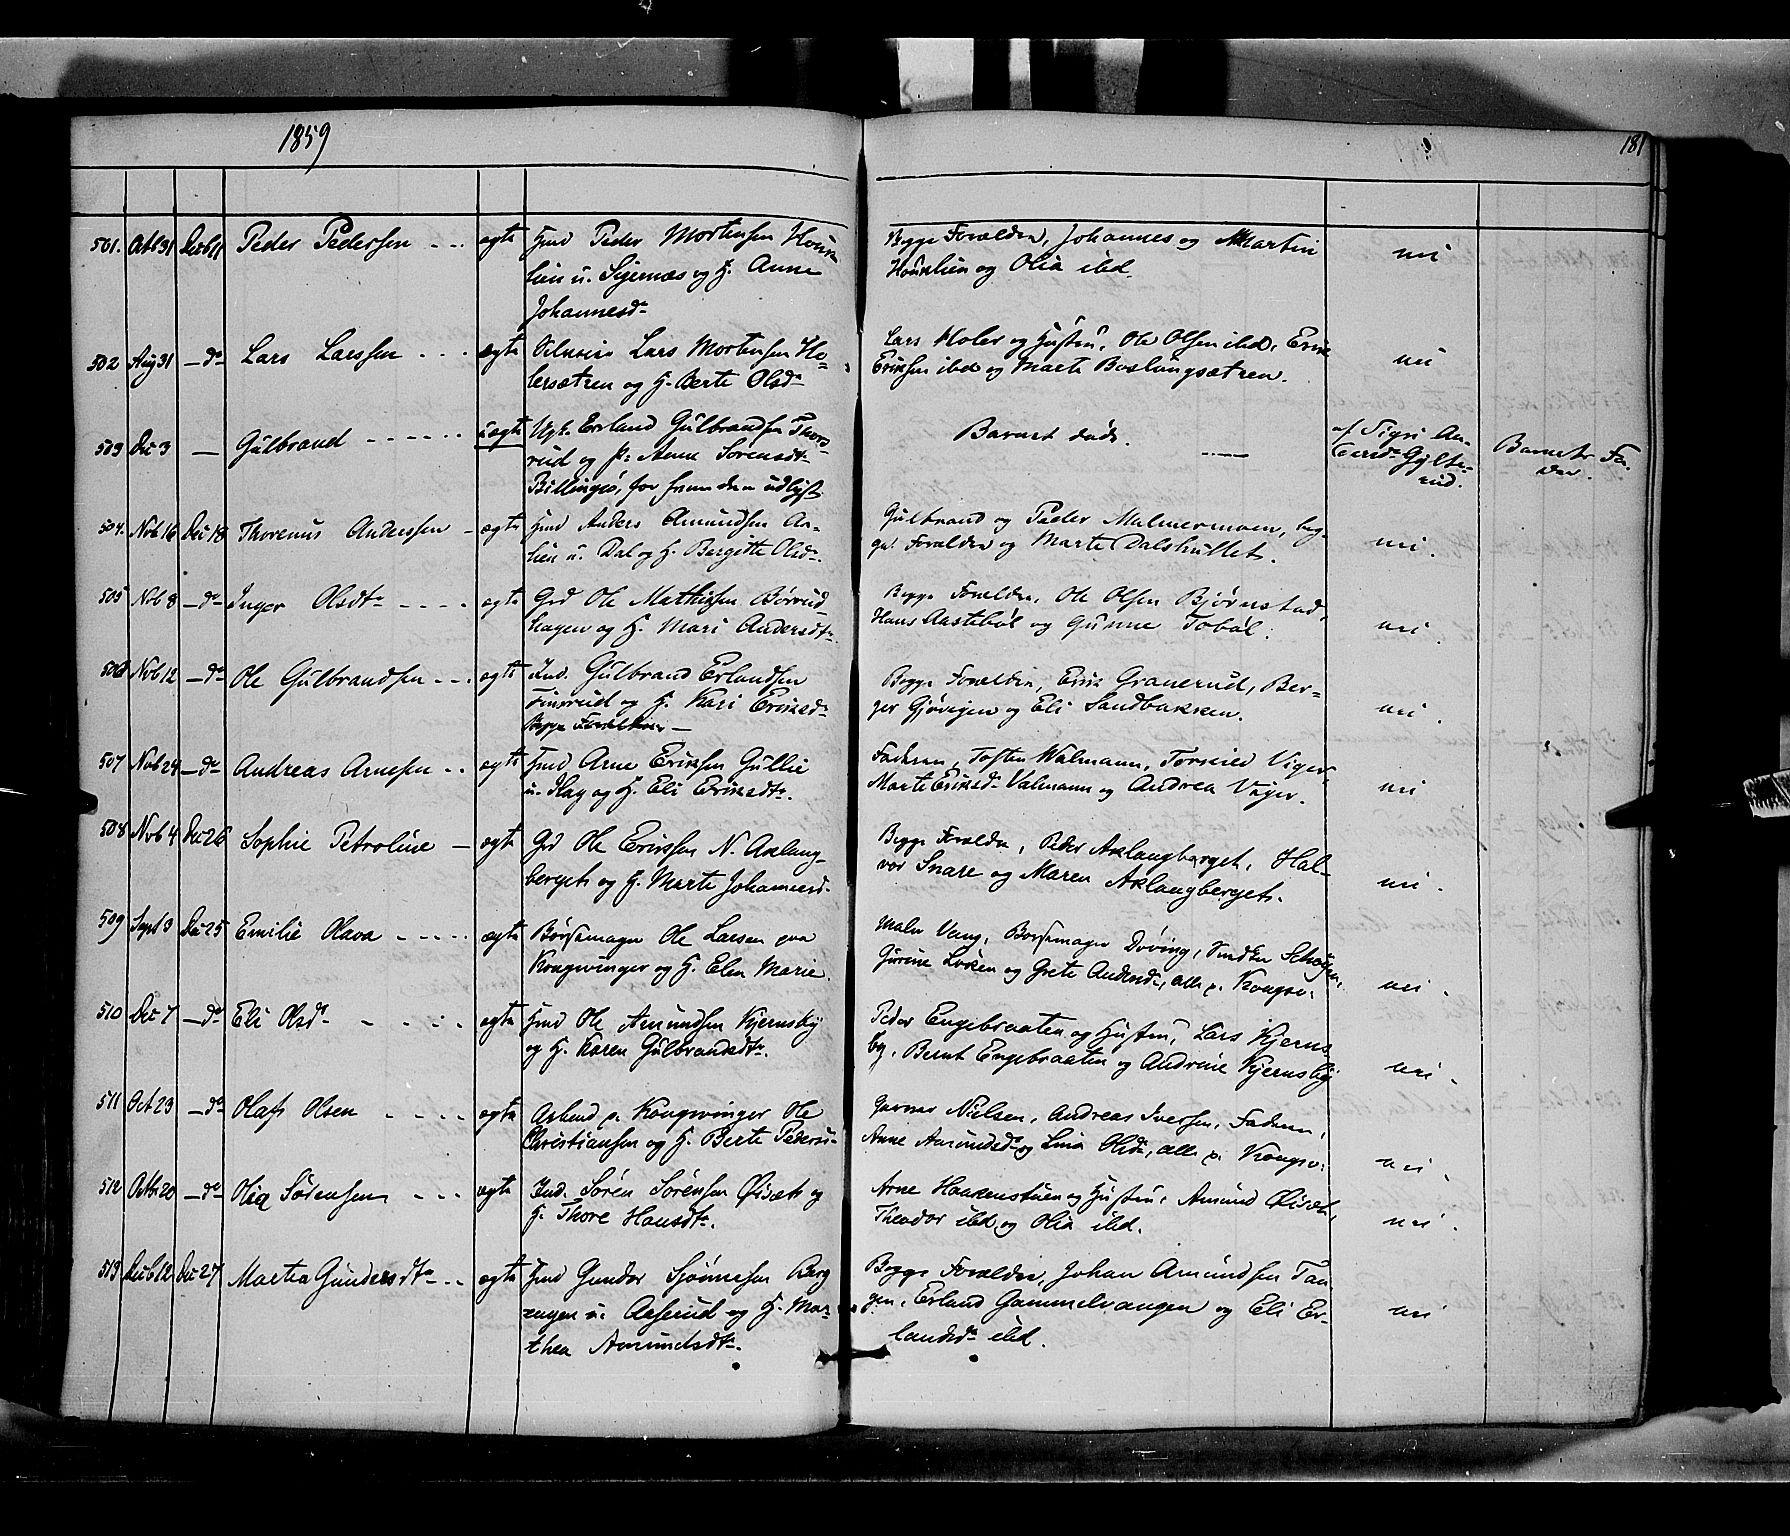 1859
181
501. Octb 31 Decb 11 Peder Pedersen ægte Hmd Peder Mortensen Houk-
lien u. Sigernæs og H. Anne
Johannesdr
Begge Forældre, Johannes og Martin
Houklien og Olia ibd. nei
502 Aug 31 — do Lars Larssen ægte Selveier Lars Mortensen Ho-
lersætren og H. Berte Olsdr
Lars Holer og Hustru, Ole Olsen ibd, Erik
Eriksen ibd og Marte Baslungsætren. nei
503 Dec 3 — Gulbrand uægte Ugk. Erland Gulbrandsen Thors-
rud og p: Anne Sørensdtr
Billingsø, for fremden udlyst.
Barnet døde. af Sigri An-
dersdr Gylte-
rud. Barnets Fa-
der.
504. Nob 16 Dec 18 Thorenus Anderssen ægte Hmd Anders Amundsen Aa-
lien u. Dal og H. Bergitte Olsdr.
Gulbrand og Peder Malmermoen, beg-
ge Forældre og Marte Dalshullet. nei.
505 Nob 8 — do Inger Olsdtr ægte Grd Ole Mathissen Børrud-
hagen og H. Mari Andersdtr.
Begge Forældre, Ole Olsen Bjørnstad,
Hans Aastebøl og Gunne Tobøl. nei.
506 Nob 12 — do Ole Gulbrandsen ægte Ind. Gulbrand Erlandsen
rud og H. Kari Eriksdr
Begge Forældre —
Begge Forældre, Erik Granerud, Ber-
ger Gjøvigen og Eli Sandbakken. nei.
507 Nob 24 — do Andreas Arnesen ægte Hmd Arne Eriksen Gullie
u. Hag og H. Eli Eriksdtr.
Faderen, Tosten Walmann, Torsten Viger,
Marte Eriksdr Valmann og Andrea Viger. nei
508 Nob 4 Dec 26 Sophie Petroline — ægte Grd Ole Erikssen N. Aklang-
berget og H. Marte Johannesd.
Begge Forældre, Peder Aklangberget, Hal-
vor Snare og Maren Aklangberget. nei.
509 Sept 3 Dec 25 Emilie Olava ægte Børsemager Ole Larsen paa
Kongsvinger og H. Elen Marie.
Maler Vang, Børsemager Døving, Snedker
Gurine Løken og Grete Andersdr, alle p. Kongsv. nei.
510 Dec 7 — do Eli Olsdr ægte Hmd Ole Amundsen Kjernsby
og H. Karen Gulbrandsdtr.
Peder Engebraaten og Hustru, Lars Kjerns-
by, Bernt Engebraaten og Andrine Kjernsby nei.
511 Oct 23 — do Olaf Olsen ægte Arbmd p. Kongsvinger Ole
Christiansen og H. Berte Peders-
Gunnar Nielsen, Andreas Iversen, Faderen,
Anne Amundsdr og Lina Olsdr, alle p. Kongsv: nei.
512 Octb 20 — do Olia Sørensen ægte Ind. Søren Sørensen Øisæt og
H. Thore Hansdtr.
Arne Haakenstuen og Hustru, Amund Øisæt,
Theodor ibd og Olia ibd. nei.
513 Decb 12 Dec 27 Marthea Gundersdtr ægte Hmd Gunder Sjønnesen Berg
engen u. Aaserud og H. Mar-
thea Amundsdtr.
Begge Forældre, Johan Amundsen Tan-
gen, Erland Gammelvangen og Eli Er-
landsdr ibd. nei